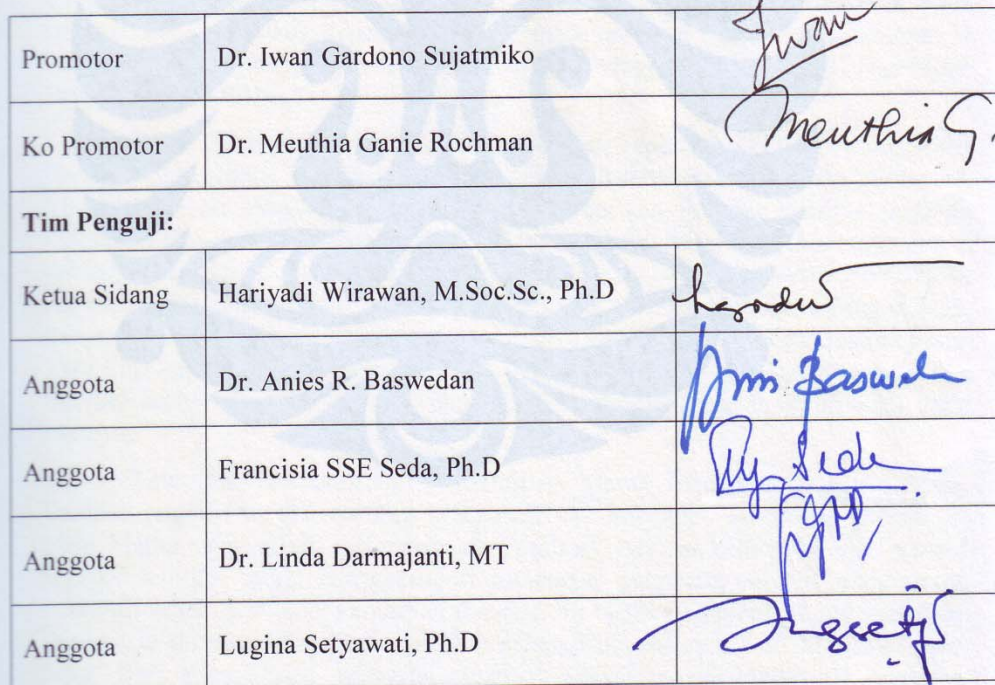 Promotor Dr. Iwan Gardono Sujatmiko Iwan
Ko Promotor Dr. Meuthia Ganie Rochman Meuthia G.
Tim Penguji:
Ketua Sidang Hariyadi Wirawan, M.Soc.Sc., Ph.D
Anggota Dr. Anies R. Baswedan
Anggota Francisia SSE Seda, Ph.D
Anggota Dr. Linda Darmajanti, MT
Anggota Lugina Setyawati, Ph.D